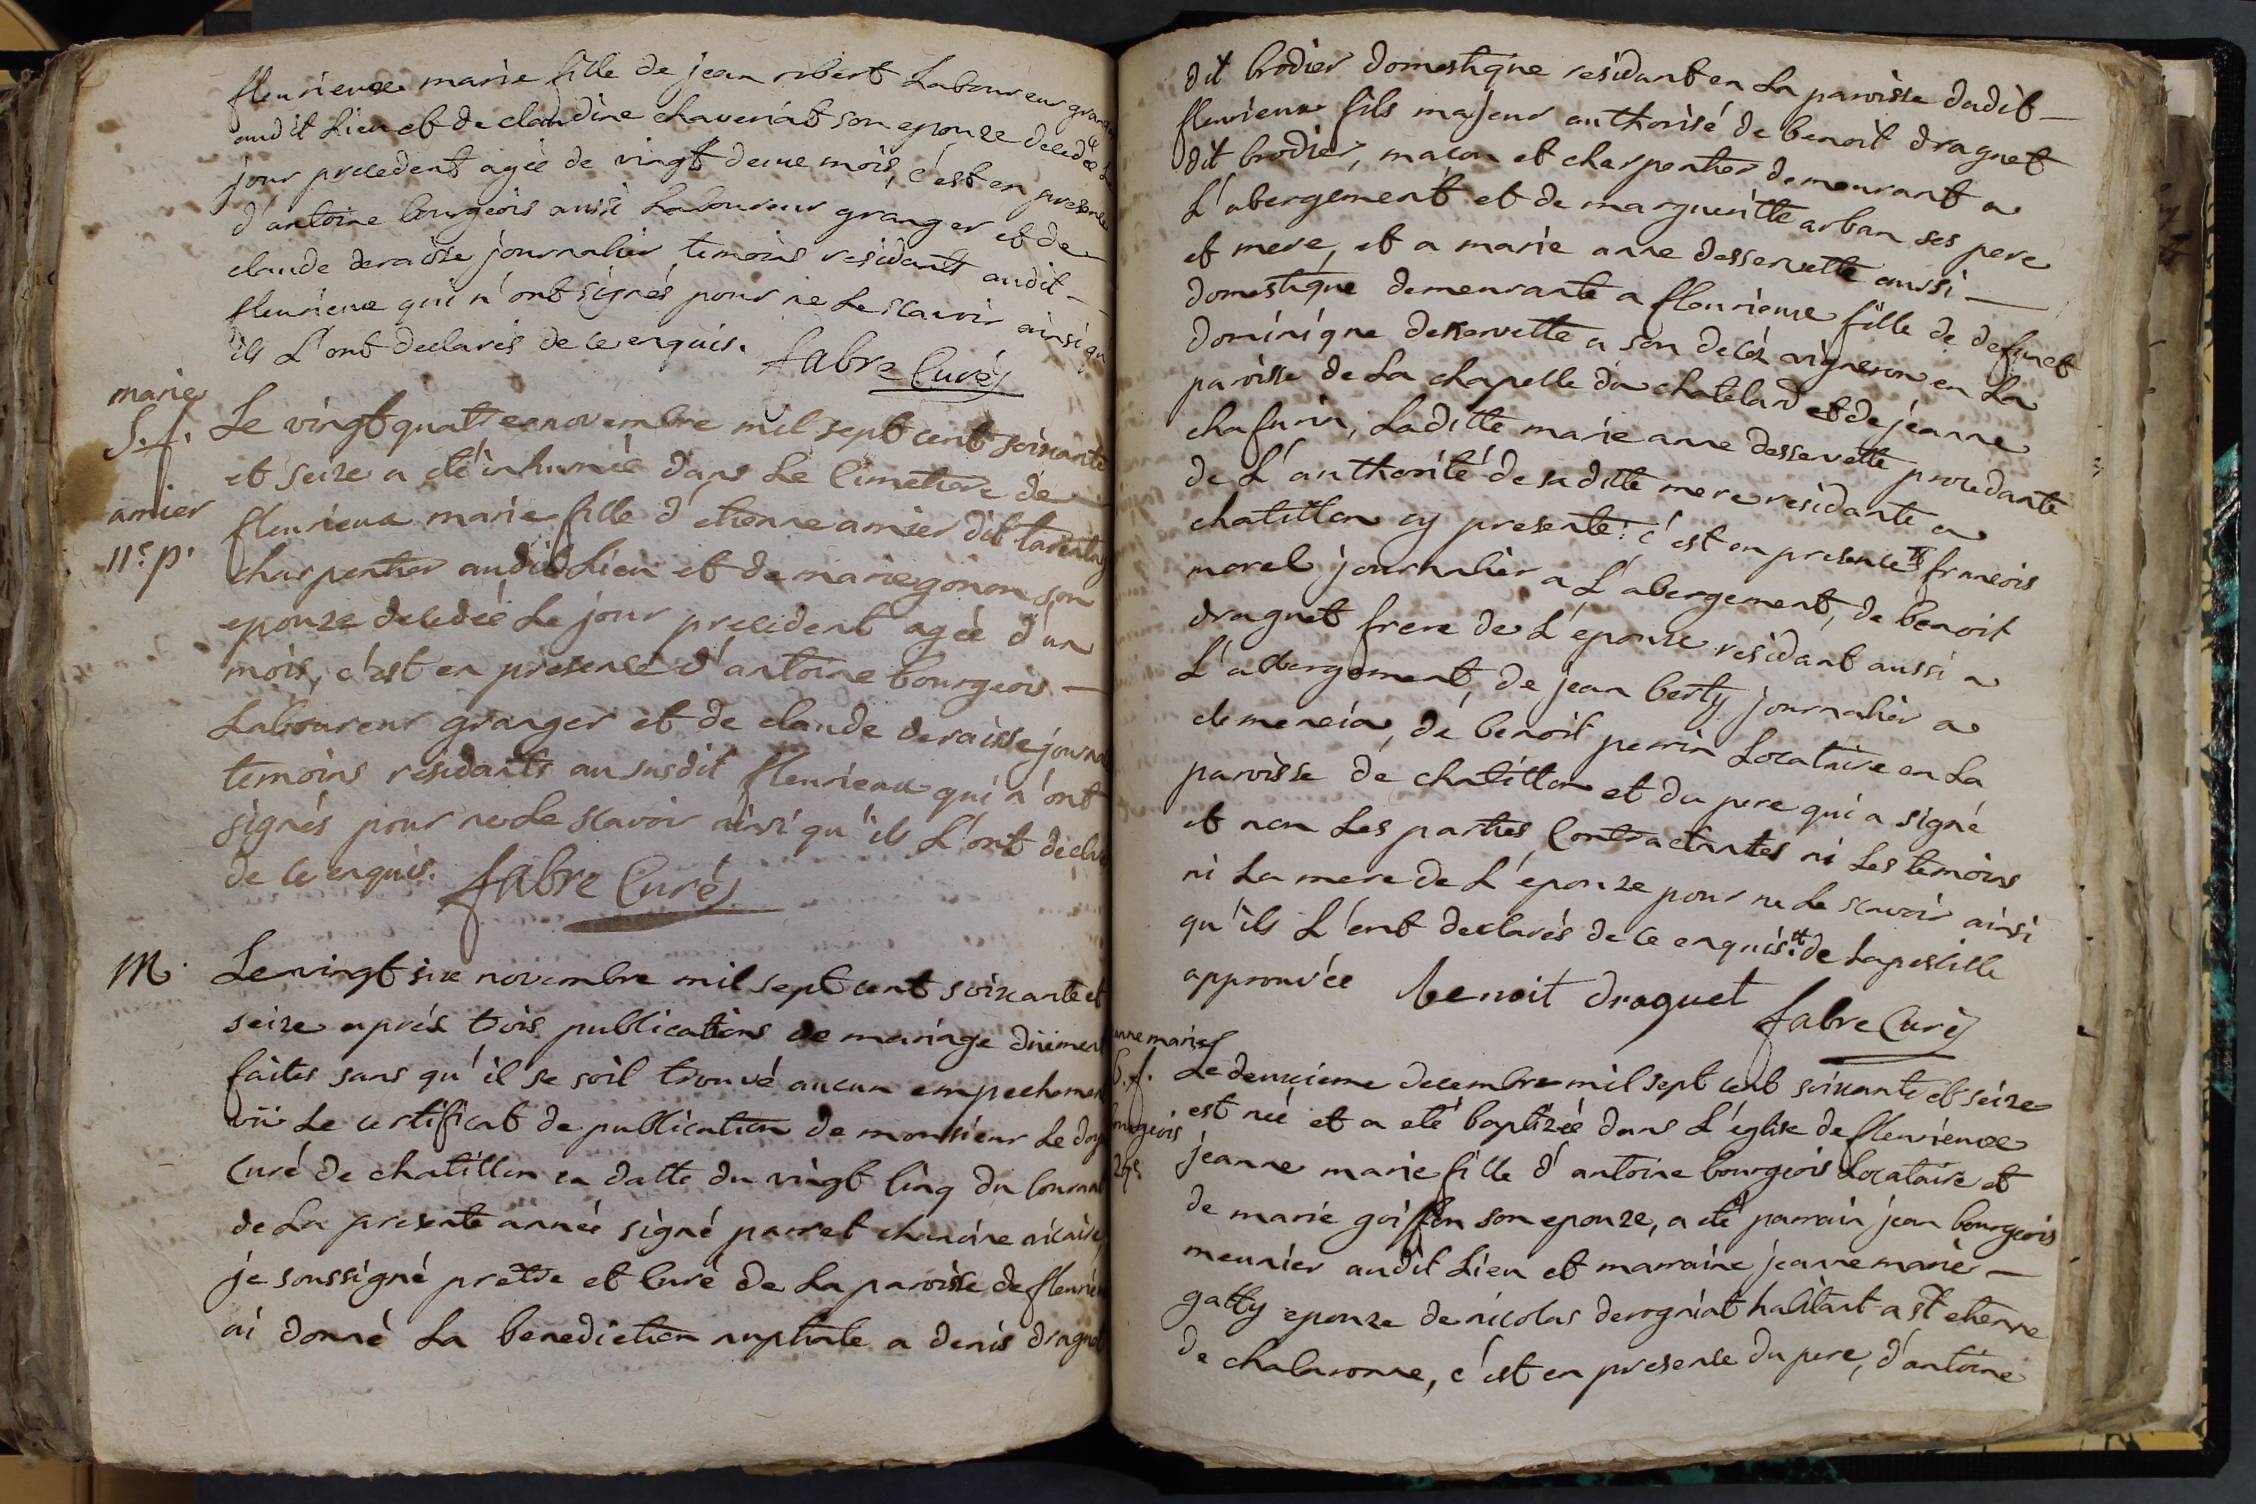 fleurieux marie fille de jean robert Laboureur granger
audit Lieu et de claudine chavenat son epouze decedée Le
jour precedent agée de vingt deux mois, c'est en presence
d'antoine bourgeois aussi Laboureur granger et de
claude deraisse journalier temoins residants audit —
fleurieux qui n'ont signés pour ne Le scavoir ainsi qu
ils L'ont declarés de ce enquis. fabre Curé
marie
S. f.
amier
11e. p.
Le vingt quatre novembre mil sept cent soixante
et seize a eté inhumée dans Le Cimetiere de
fleurieux marie fille d'etienne amier dit
charpentier audit Lieu et de marie gonon son
epouze decedée Le jour precedent agée d'un
mois, c'est en presence d'antoine bourgeois —
Laboureur granger et de claude deraisse journa
temoins residants au susdit fleurieux qui n'ont
signés pour ne Le scavoir ainsi qu'ils L'ont decla
de ce enquis. fabre Curé
M.
Le vingt six novembre mil sept cent soixante et
seize aprés trois publications de mariage düement
faites sans qu'il se soit trouvé aucun empechement
vü Le certificat de publication de monsieur Le doy
Curé de chatillon en datte du vingt cinq du courant
de La presente année signé parret chanoine vicaire,
je soussigné prêtre et Curé de La paroisse de fleurieu
ai donné La benediction nuptiale a denis draguet
dit brodier domestique residant en La paroisse dudit —
fleurieux fils majeur authorisé de benoit draguet
dit brodier, macon et charpentier demeurant a
L'abergement et de margueritte arban ses pere
et mere, et a marie anne desservette aussi —
domestique demeurante a fleurieux fille de defunct
dominique deservette a son decés vigneron en La
paroisse de La chapelle du chatelard et de jeanne
chafurin, Laditte marie anne desservette procedante
de L'authorité de sa ditte mere residante a
chatillon cy presente: c'est en presence francois
morel journalier a L'abergement, de benoit
draguet frere de L'epouze residant aussi a
L'abergement, de jean berty journalier a
clemencia, de benoit perrin Locataire en La
paroisse de chatillon et du pere qui a signé
et non Les parties Contractantes ni Les temoins
ni La mere de L'epouze pour ne Le scavoir ainsi
qu'ils L'ont declarés de ce enquis. de Lapostille
approuvée benoit draguet fabre Curé
anne marie
S. f.
bourgeois
27e.
Le deuxieme decembre mil sept cent soixante et seize
est neé et a eté baptizée dans L'église de fleurieux
jeanne marie fille d'antoine bourgeois Locataire et
de marie goiffon son epouze, a eté parrain jean bourgeois
meunier audit Lieu et marraine jeanne marie —
gatty epouze de nicolas derogniat habitant a st etienne
de chalaronne, c'est en presence du pere, d'antoine